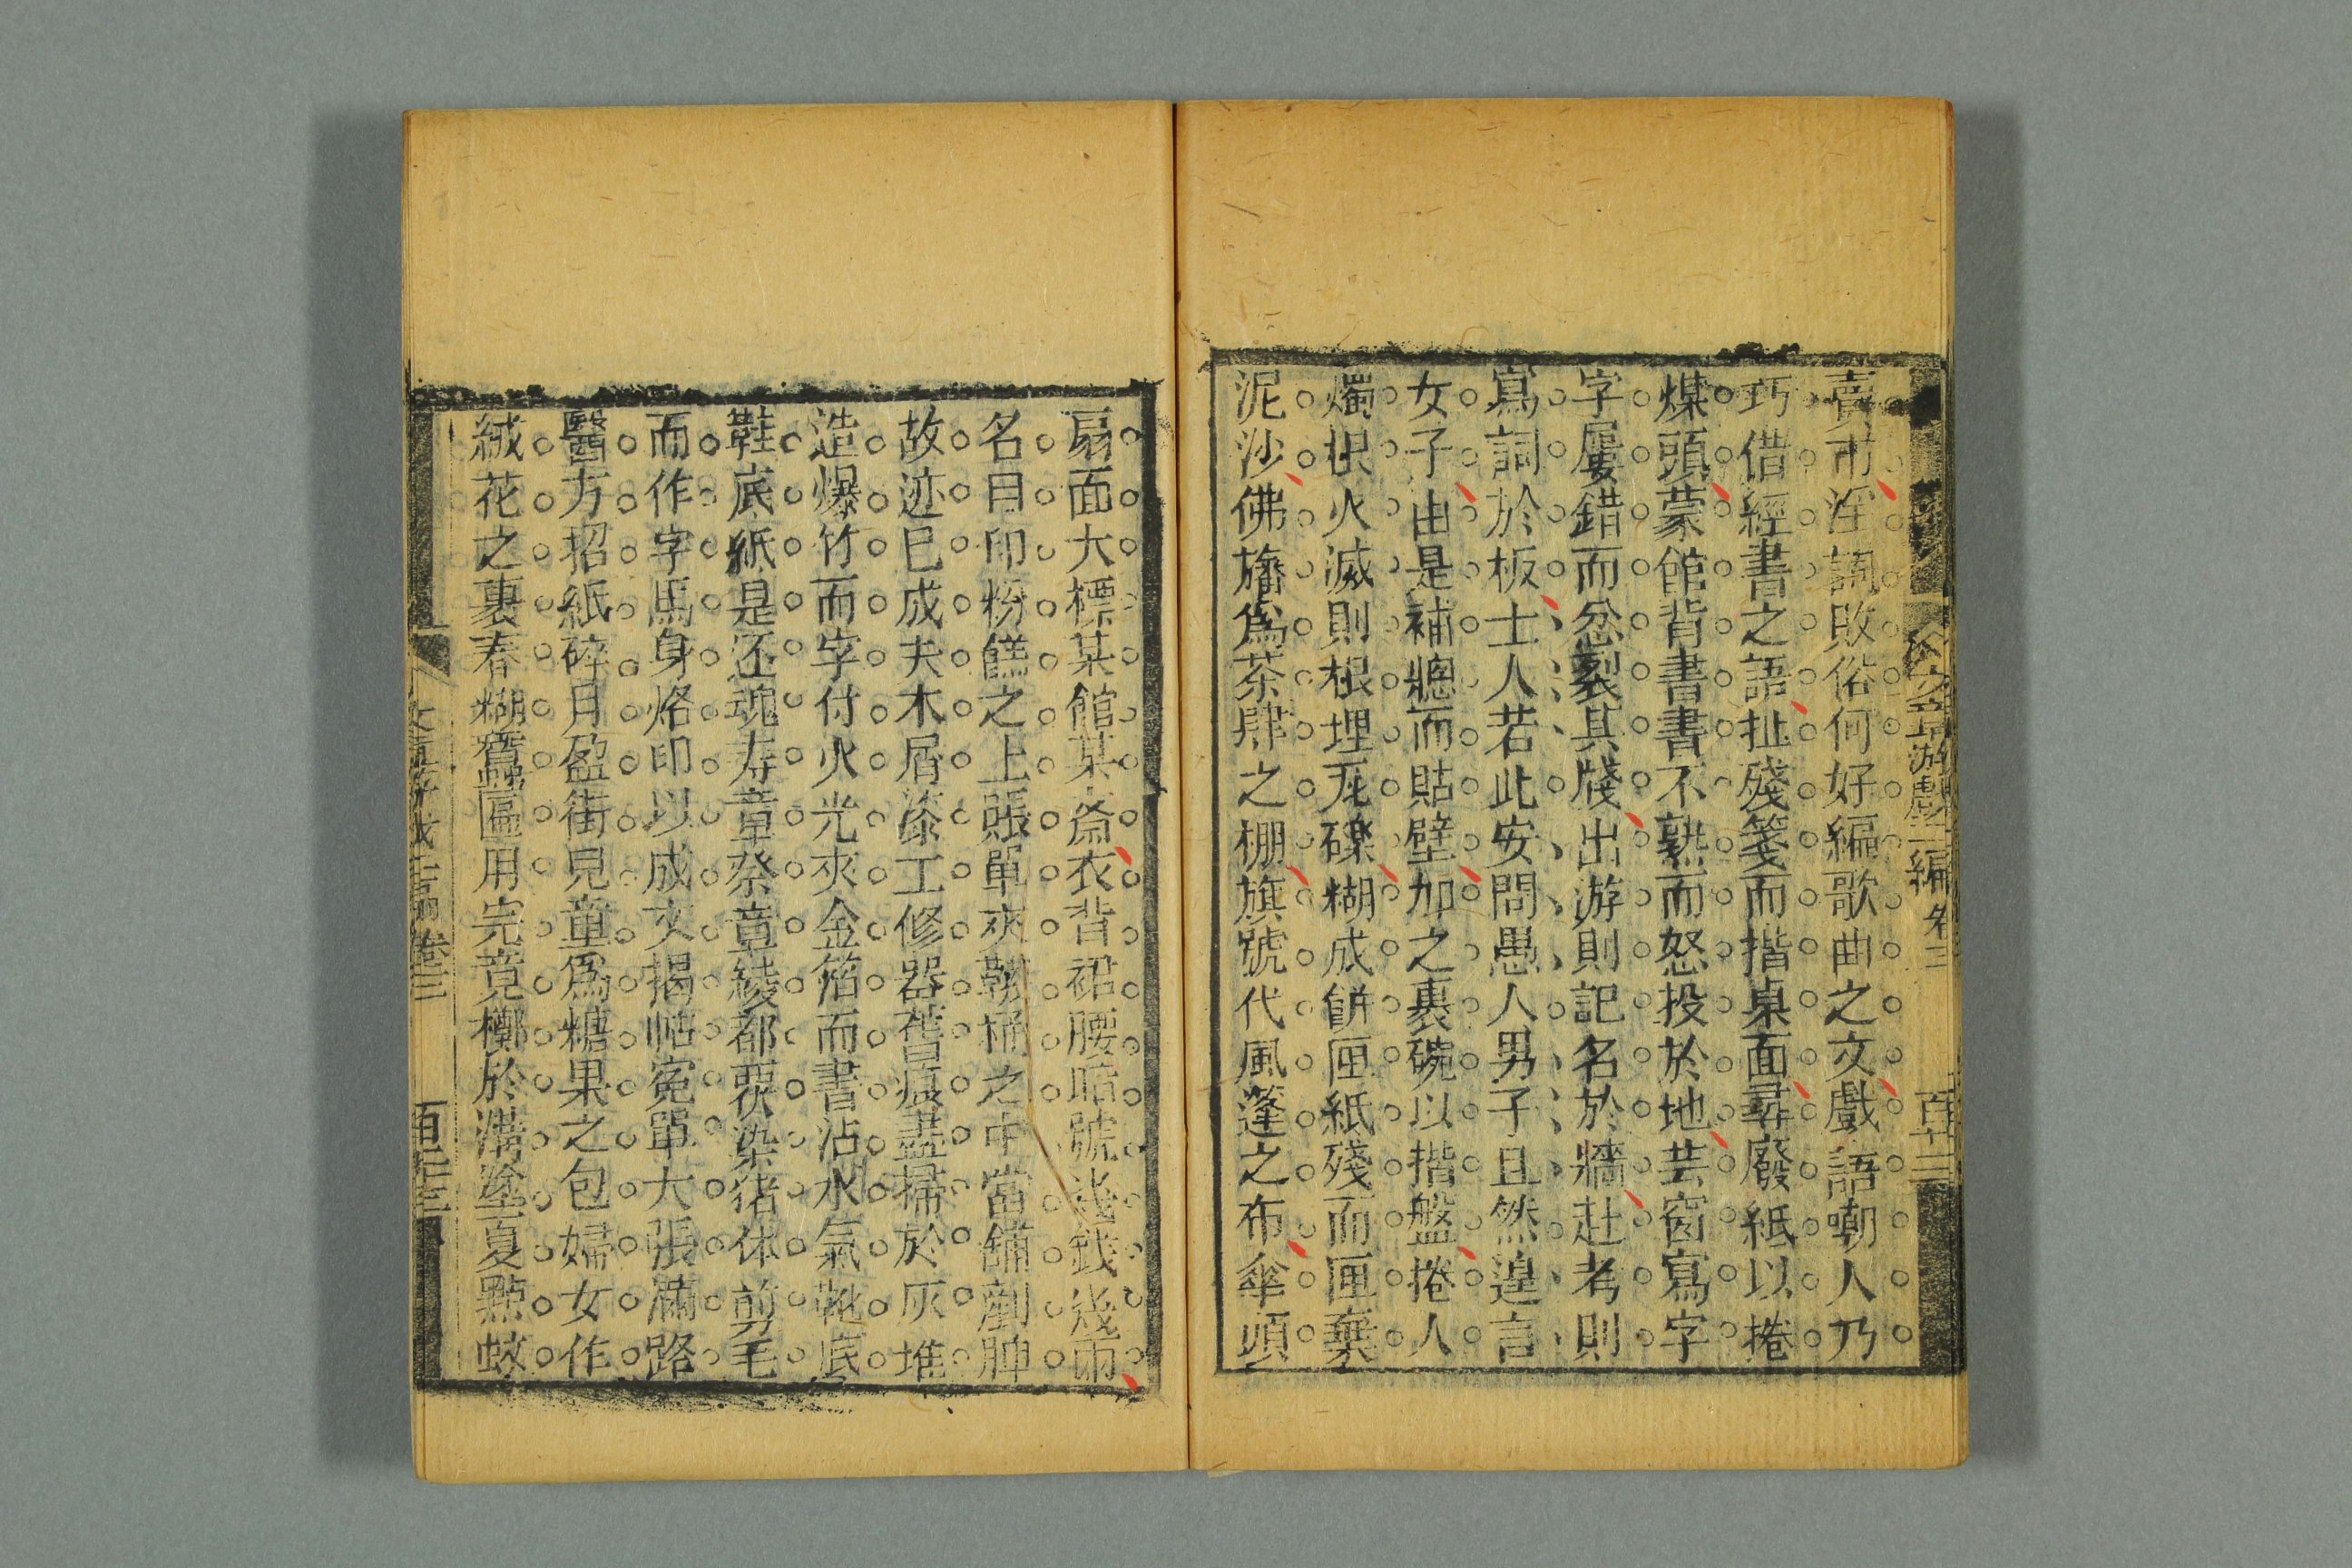 文章游戲二編 卷三
賣市淫詞敗俗何好編歌曲之文戲語嘲人乃
巧借經書之語扯殘箋而揩桌面尋廢紙以捲
煤頭蒙館背書書不熟而怒投於地芸窗寫字
字屢錯而忿裂其牋出游則記名於牆赴考則
寫詞於板士人若此安問愚人男子且然遑言
女子由是補牕而貼壁加之裹碗以揩盤捲人
燭根火滅則根埋瓦礫糊成餅匣紙殘而匣棄
泥沙佛旛為茶肆之棚旗號代風篷之布傘頭
扇面大標某館某齋衣背裙腰暗號幾錢幾兩
名目印粉餻之上賬單夾鞝桶之中當舖劑胂
故迹已成夫木屑漆工修器舊痕盡掃於灰堆
造爆竹而字付火光夾金箔而書沾水氣靴底
鞋底紙是還魂壽章祭章綾都要染猪体剪毛
而作字馬身烙印以成文揭帖冤單大張滿路
醫方招紙碎月盈街見童為糖果之包婦女作
絨花之裹春糊蠶區用完竟擲於溝塗夏點蚊
卷三